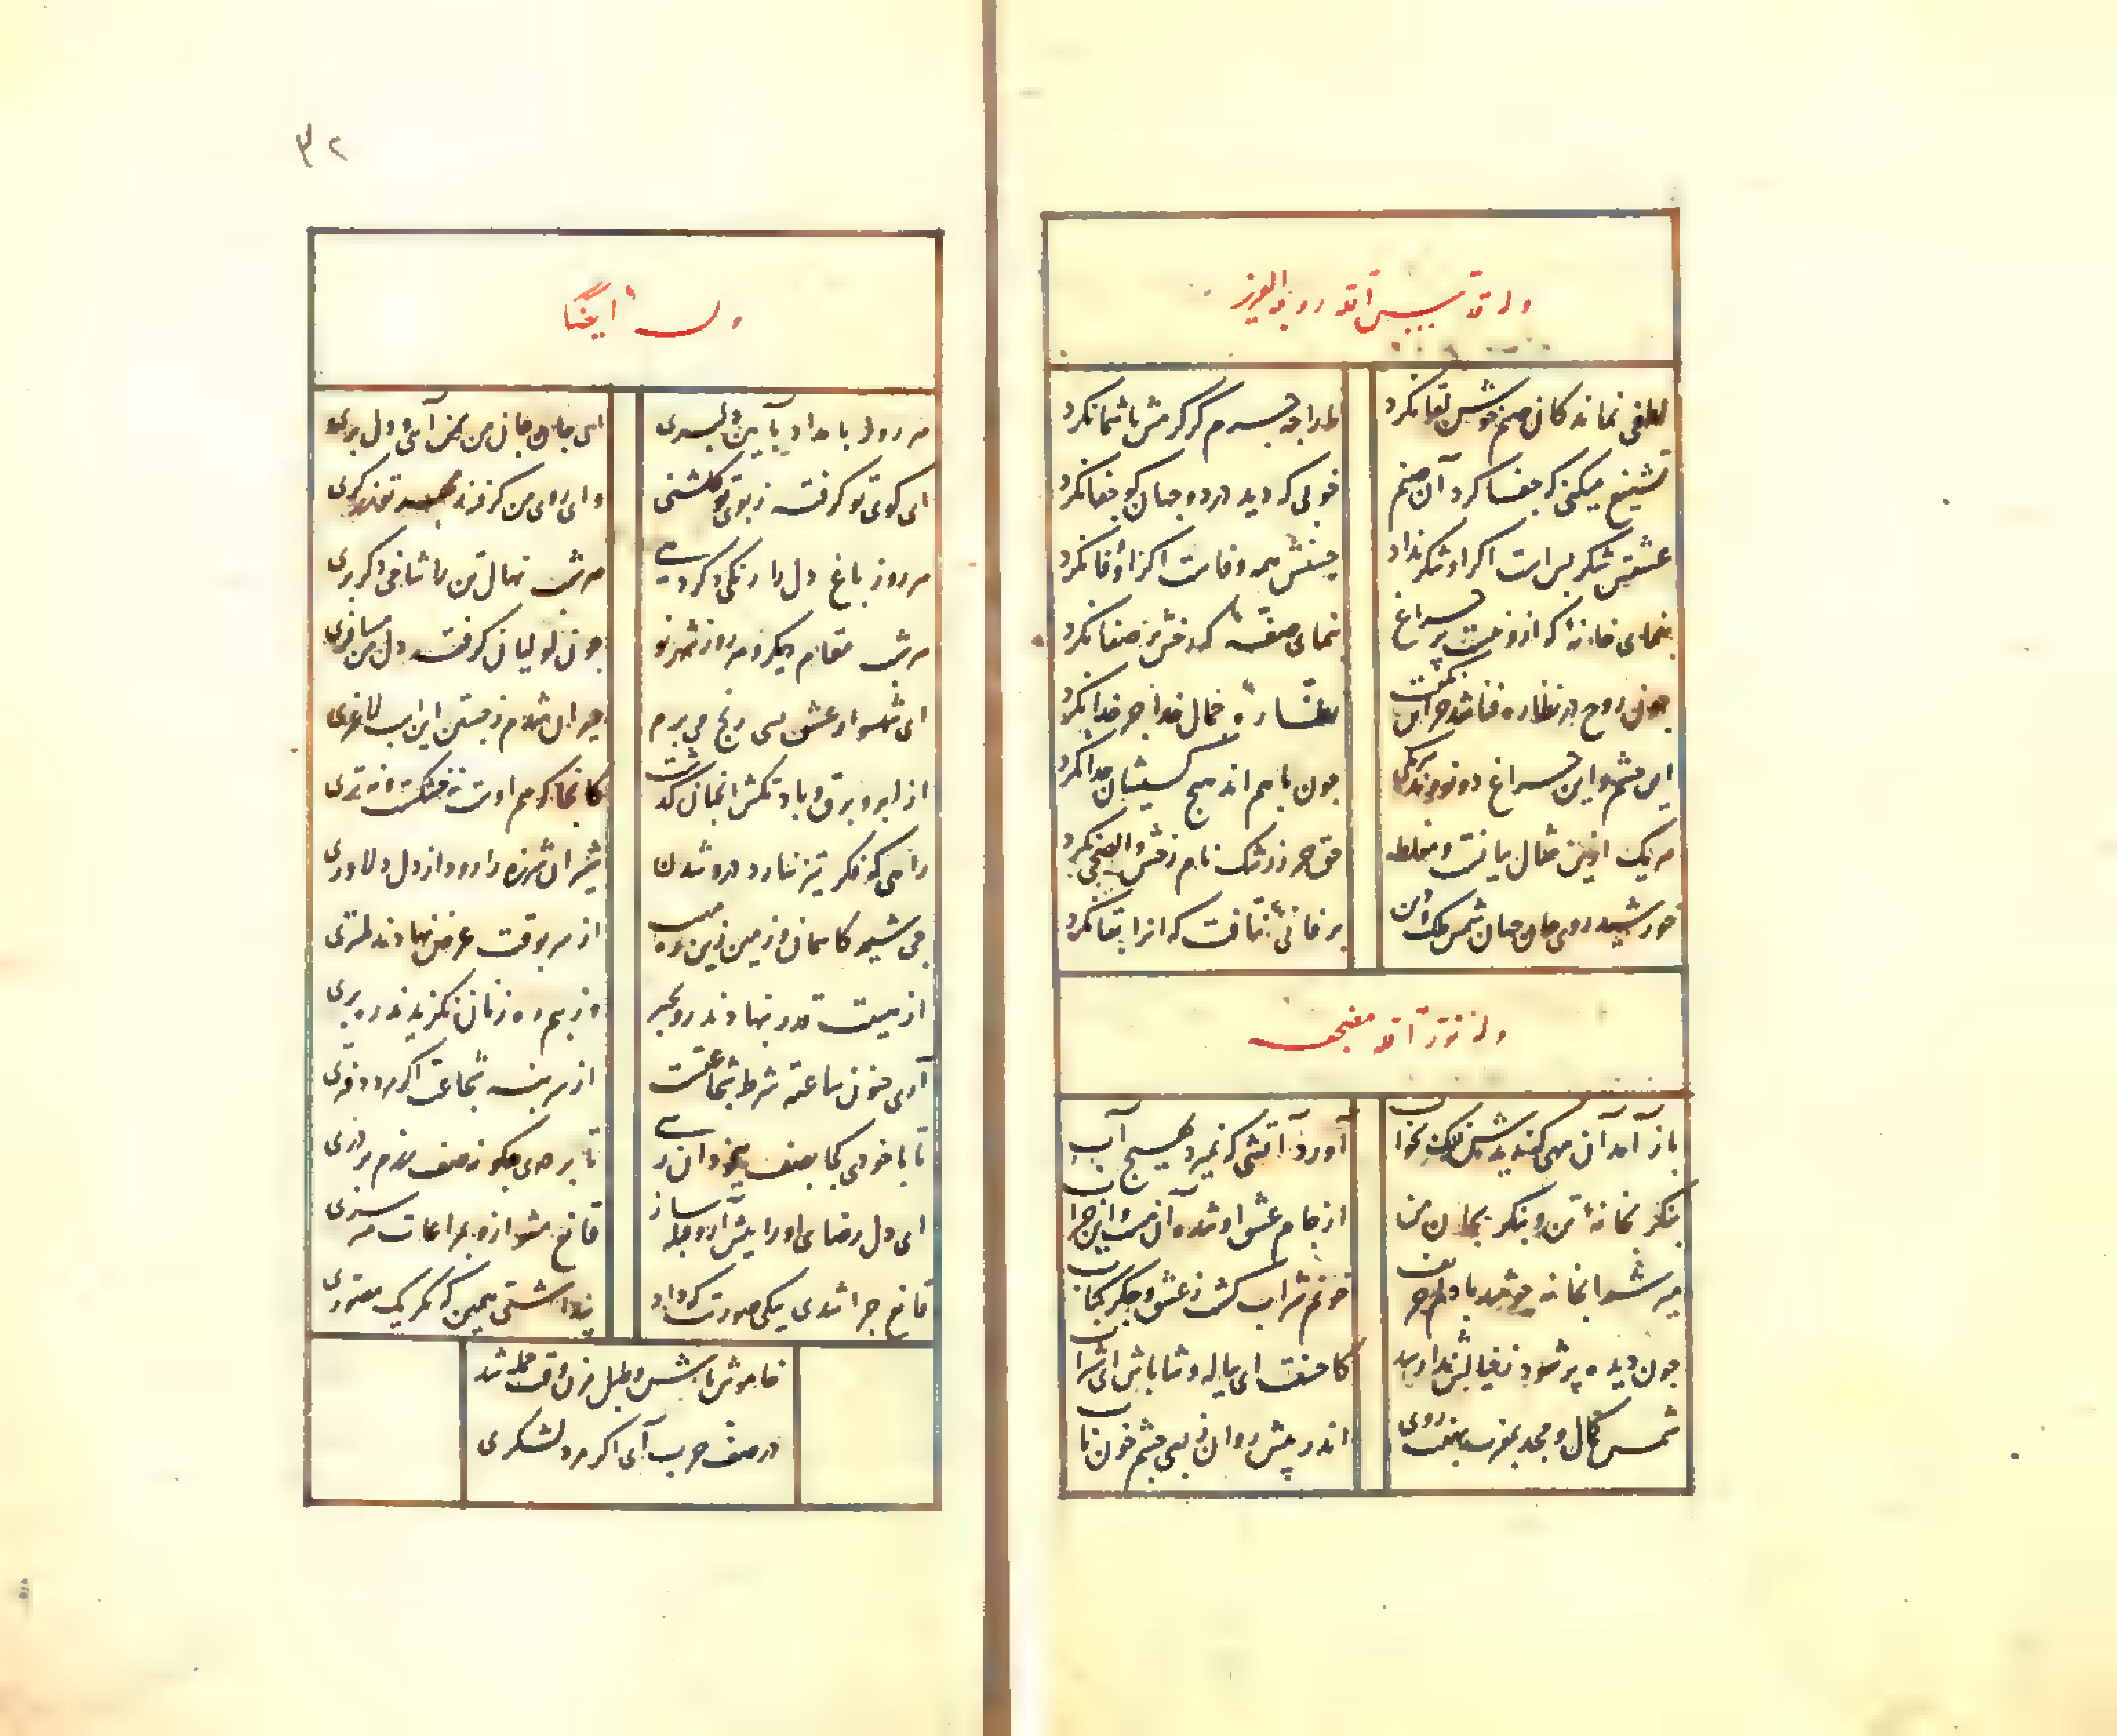 وله قدس الله روحه العزیز
لطفی نماند کان صنم خوش لقا نکرد
ما را چه جرم گر کرمش با شما نکرد
تشنیع میکنی که جفا کرد آن صنم
خوبی که دید در دو جهان کو جفا نکرد
عشقش شکر بس است اگر او شکر نداد
حسنش همه وفاست اگر او وفا نکرد
بنمای خانهٔ که ازو نیست پر چراغ
بنمای صفهٔ که رخش پر صفا نکرد
چون روح در نظاره فنا شد این بگفت
نظارهٔ جمال خدا جز خدا نکرد
این چشم و این چراغ دو نورند هر یکی
چون بهم آمد هیچ کسیشان جدا نکرد
هر یک ازین مثال بیانست و مغلطه
حق جز ز رشک نام رخش والضحی نکرد
خورشید روی جان جهان شمس حق دین
بر فانئی نتافت که انرا بقا نکرد
وله نور الله مضجعه
باز آمد آن مهی که ندیدش فلک بخواب
آورد آتشی که نمیرد بهیچ آب
بنگر بخانهٔ تن و بنگر بجان من
از جام عشق او شده آن مست و این خراب
میر شرابخانه چو شد با دلم حریف
خونم شراب گشت ز عشق و جگر کباب
چون دیده پر شود ز خیالش ندا رسد
کاحسنت ای پیاله و شاباش ای شراب
شمس کمال و مجد بمغرب نهفت روی
اندر پیش روان ز پی چشم خون ناب
۳۲
وله ایضاً
هر روز بامداد بآیین دلبری
ای جان جان جان من آیی و دل بری
ای کوی تو گرفته ز بوی تو گلشنی
وای روی من گرفته تو زرگری
هر روز باغ دل را رنگی دگر دهی
هر شب نهال تن را شاخی دگر بری
هر شب مقام دیگر و هر روز شهر نو
چون لولیان گرفته دل من مسافری
ای شهسوار عشق پی رنج می برم
حیران شدم ز جستن این اسب لاغری
از ابر و برق و باد تکش انچنان گذشت
کانجا که هم اوست نه خشکست و نه تری
راهی که فکر نیز نیارد درو شدن
شیران شرزه را رود از دل دلاوری
چی شیر کاسمان و زمین زین ره مهیب
از سر بوقت عرض نهادند لمتری
از هیبت قدر نهادند رو بجبر
وز بیم رهزنان نگزیدند رهبری
آری جنون ساعه شرط شجاعتست
از مرد بی شجاعت اگر مرد در فری
تا با خودی کجا بصف بیخودان رسی
تا بر دری چگونه صف مردم بر دری
ای دل رضای او را پیش آر و حیله ساز
قانع مشو ازو بمراعات سرسری
قانع چرا شدی بیکی صورت که داد
پنداشتی همین که مگر یک مصوری
خاموش باش و طبل مزن وقت حمله شد
در صف حرب آی اگر مرد لشکری